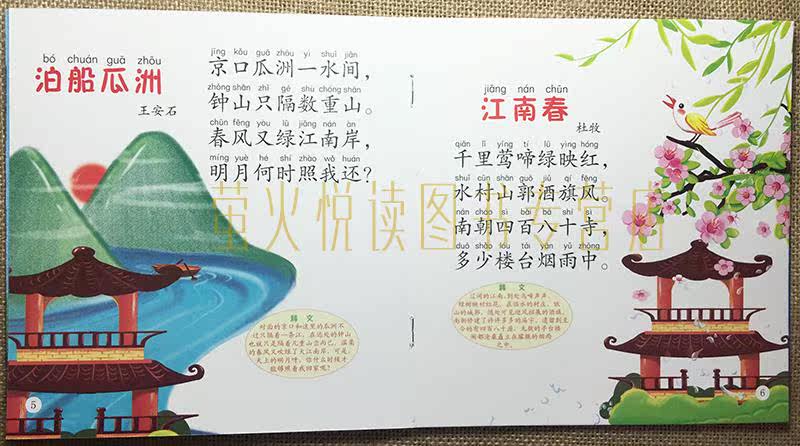 bó chuán guā zhōu
泊船瓜洲
王安石
jīng kǒu guā zhōu yì shuǐ jiān
京口瓜洲一水间，
zhōng shān zhǐ gé shù chóng shān
钟山只隔数重山。
chūn fēng yòu lǜ jiāng nán àn
春风又绿江南岸，
míng yuè hé shí zhào wǒ huán
明月何时照我还？
译文
对面的京口和这里的瓜洲不
过只隔着一条江，在远处的钟山
也就只是隔着几重山峦而已。温柔
的春风又吹绿了大江南岸，可是，
天上的明月呀，你什么时候才
能够照着我回家呢？
5
jiāng nán chūn
江南春
杜牧
qiān lǐ yīng tí lǜ yìng hóng
千里莺啼绿映红，
shuǐ cūn shān guō jiǔ qí fēng
水村山郭酒旗风。
nán cháo sì bǎi bā shí sì
南朝四百八十寺，
duō shǎo lóu tái yān yǔ zhōng
多少楼台烟雨中。
译文
6
萤火悦读图书专营店